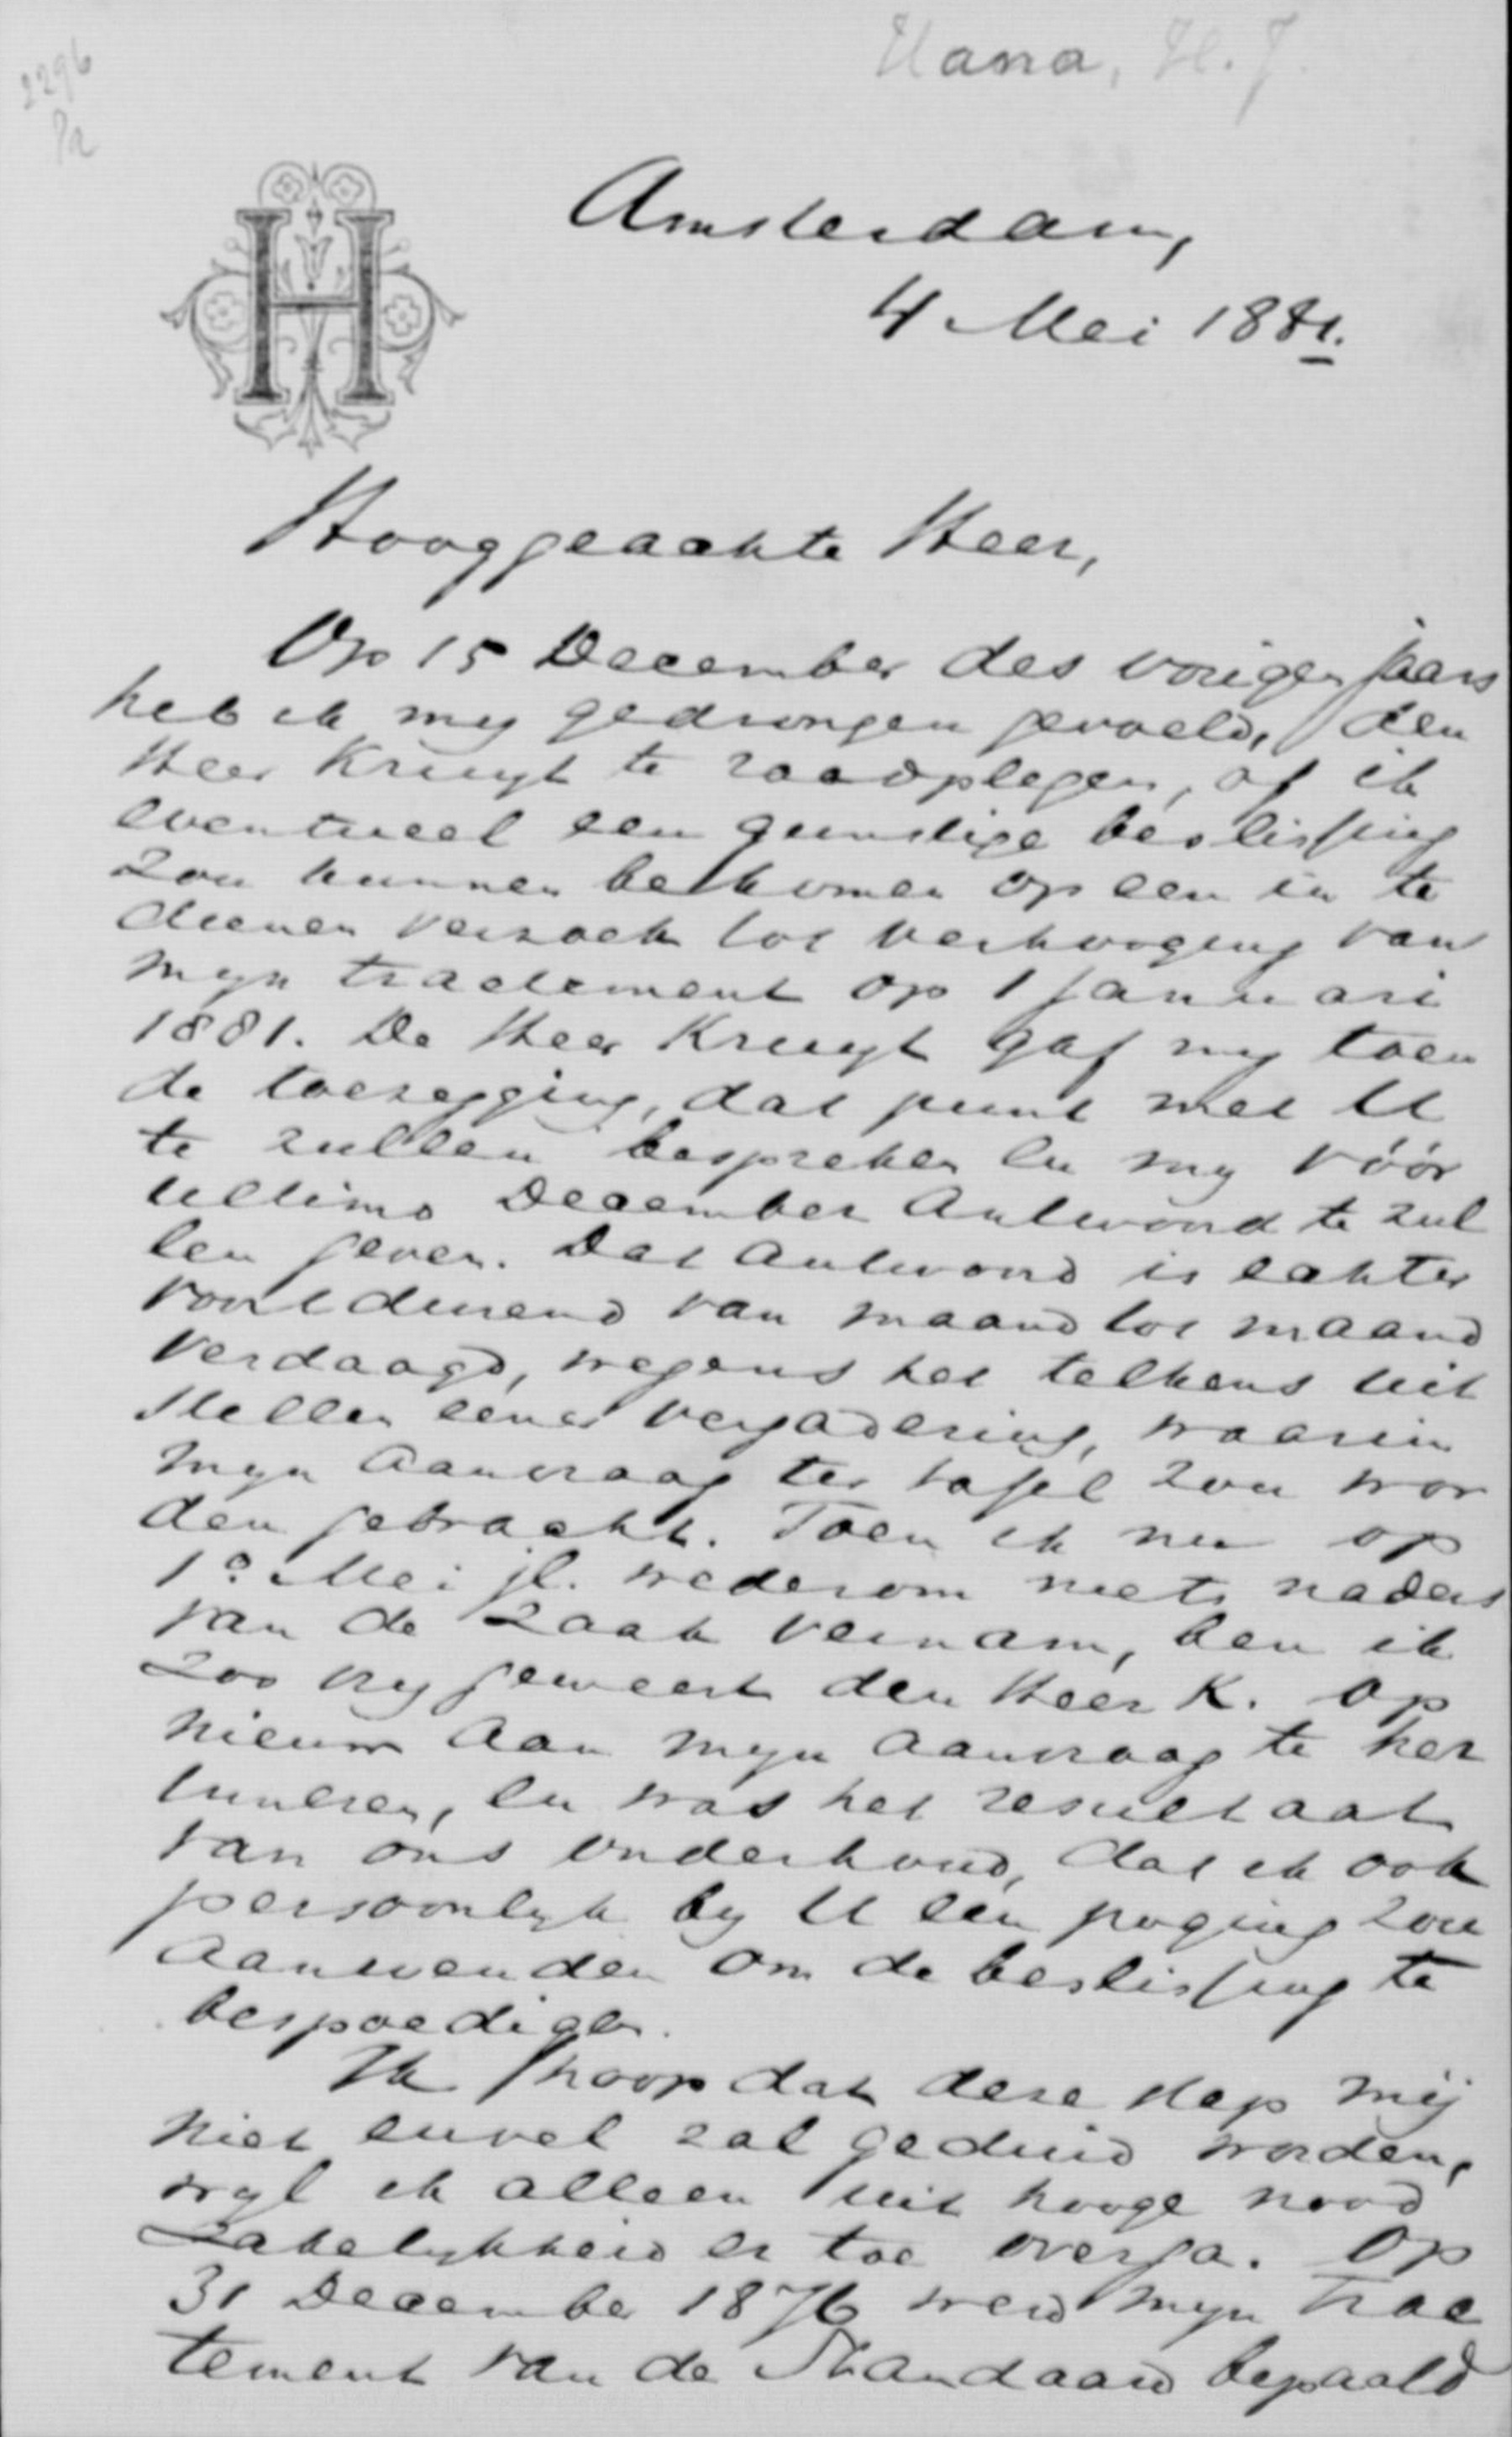 Hana, H. J.
2296
Pa
H
Amsterdam,
4 Mei 1881.
Hooggeachte Heer,
Op 15 December des vorigen jaars
heb ik my gedrongen gevoeld, den
Heer Kruyt te raadplegen, of ik
eventueel een gunstige beslissing
zou kunnen bekomen op een in te
dienen verzoek tot verhooging van
myn tractement op 1 Januari
1881. De Heer Kruyt gaf my toen
de toezegging, dat punt met U
te zullen bespreken en my vóór
ultimo December antwoord te zul
len geven. Dat antwoord is echter
voortdurend van maand tot maand
verdaagd, wegens het telkens uit
stellen eener vergadering, waarin
myn aanvraag ter tafel zou wor
den gebracht. Toen ik nu op
1o Mei jl. wederom niets naders
van de zaak vernam, ben ik
zoo vry geweest den Heer K. op
nieuw aan myn aanvraag te her
inneren, en was het resultaat
van ons onderhoud, dat ik ook
persoonlyk by U een poging zou
aanwenden om de beslissing te
bespoedigen.
Ik hoop dat deze stap mij
niet euvel zal geduid worden,
wyl ik alleen uit hooge nood
zakelykheid er toe overga. Op
31 December 1876 werd myn trac
tement van de Standaard bepaald